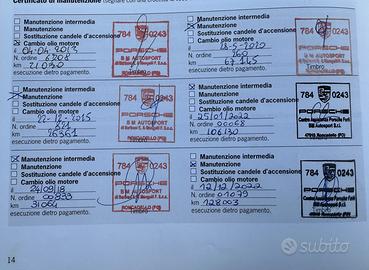 Certificato di Manutenzione
Manutenzione intermedia
Manutenzione
Sostituzione candele d'accensione
Cambio olio motore
il 04-04-2013
N. ordine 6208
km 21050
esecuzione dietro pagamento.
784 0243
PORSCHE
B M AUTOSPORT
Timbro
Manutenzione intermedia
Manutenzione
Sostituzione candele d'accensione
Cambio olio motore
il 28-5-2020
N. ordine 260
km 67.145
esecuzione dietro pagamento.
784 0243
PORSCHE
B M AUTOSPORT
Timbro
Manutenzione intermedia
Manutenzione
Sostituzione candele d'accensione
Cambio olio motore
N. ordine 871
km
esecuzione dietro pagamento.
784 0243
PORSCHE
B M AUTOSPORT
Manutenzione intermedia
Manutenzione
Sostituzione candele d'accensione
Cambio olio motore
il 25/01/2022
N. ordine 00068
km 106130
esecuzione dietro pagamento.
784 0243
PORSCHE
Manutenzione intermedia
Manutenzione
Sostituzione candele d'accensione
Cambio olio motore
il 24/09/18
N. ordine 00899
km
esecuzione dietro pagamento.
784 0243
PORSCHE
B M AUTOSPORT
Manutenzione intermedia
Manutenzione
Sostituzione candele d'accensione
Cambio olio motore
il 12/12/2022
N. ordine 01079
km 128003
esecuzione dietro pagamento.
784 0243
PORSCHE
14
subito